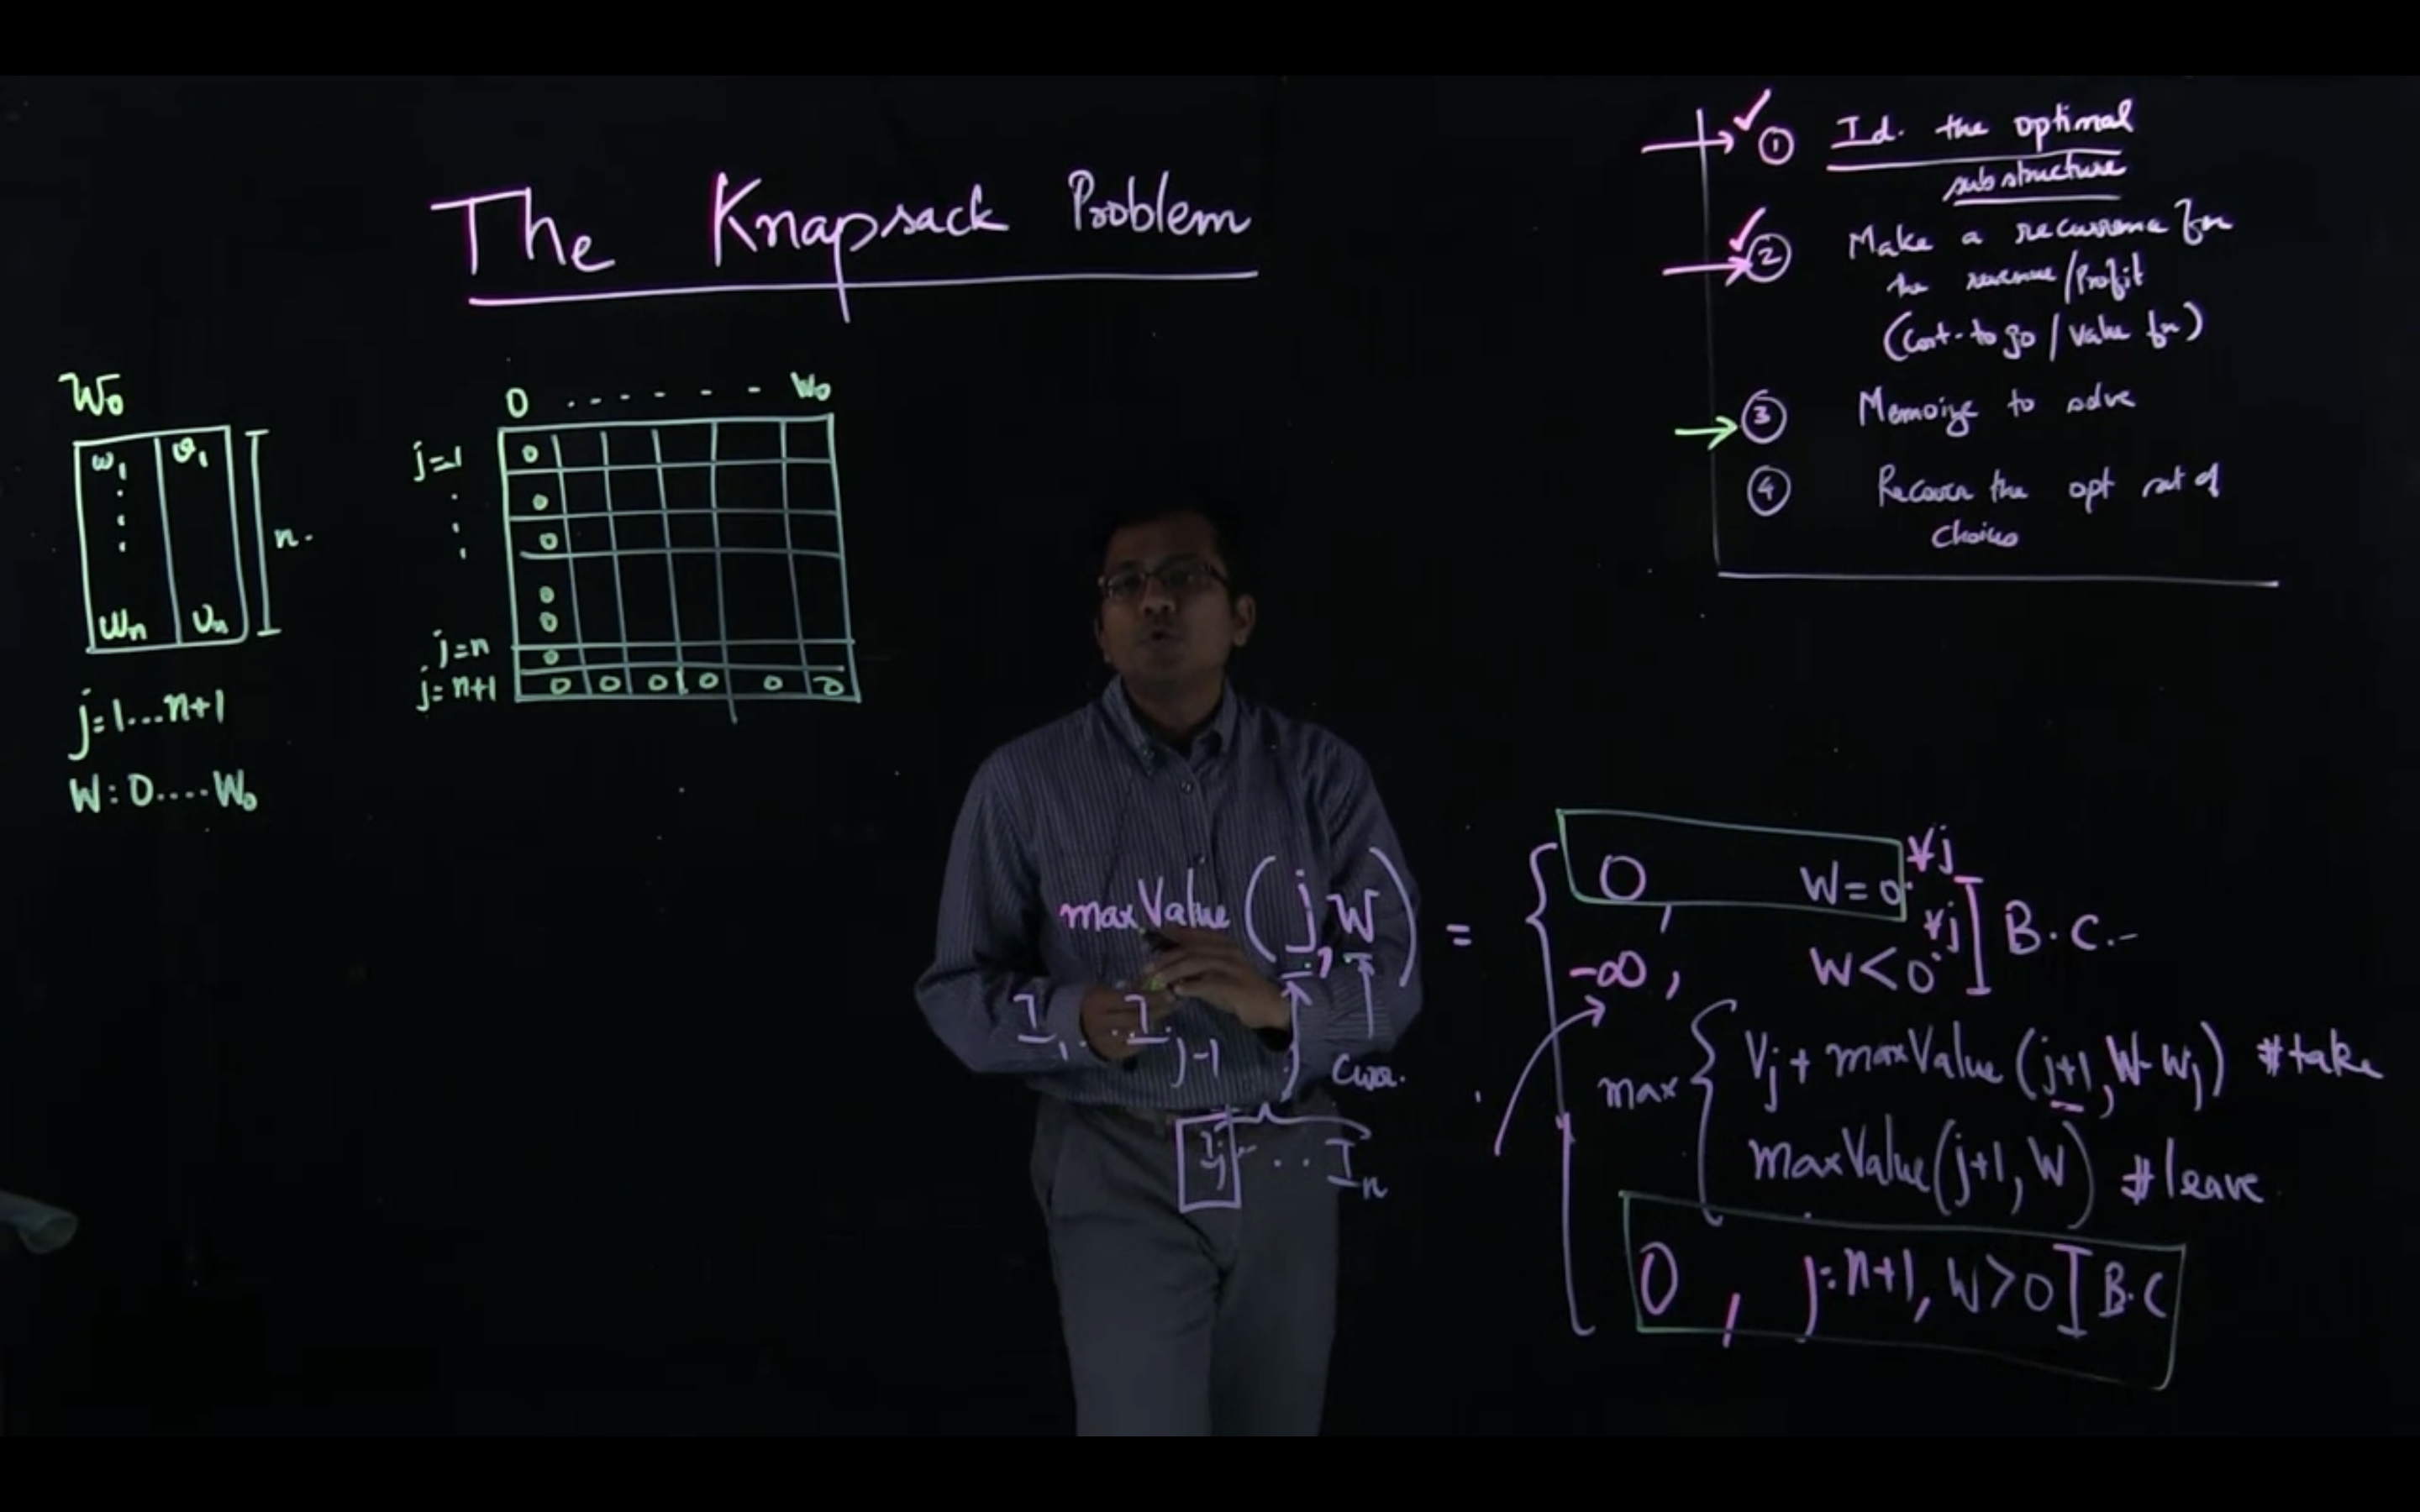 The Knapsack Problem
① Id. the optimal
substructure
② Make a recurrence for
the revenue/Profit
(Cost-to go / Value fn)
③ Memoize to solve
④ Recover the opt set of
choices
W₀
w₁ v₁
wₙ vₙ
n.
j=1...n+1
W: 0....W₀
0 . . - - - - - W₀
j=1 0
0
0
0
0
j=n 0
j=n+1 0 0 0 0 0 0
maxValue (j, W) =
0, W=0. ∀j
-∞, W<0. ∀j
B.C.-
max
Vj + maxValue (j+1, W-wj) #take
maxValue(j+1, W) #leave.
0, j=n+1, W>0 B.C
I₁ . . Ij-1
Curr.
Ij . . . Iₙ